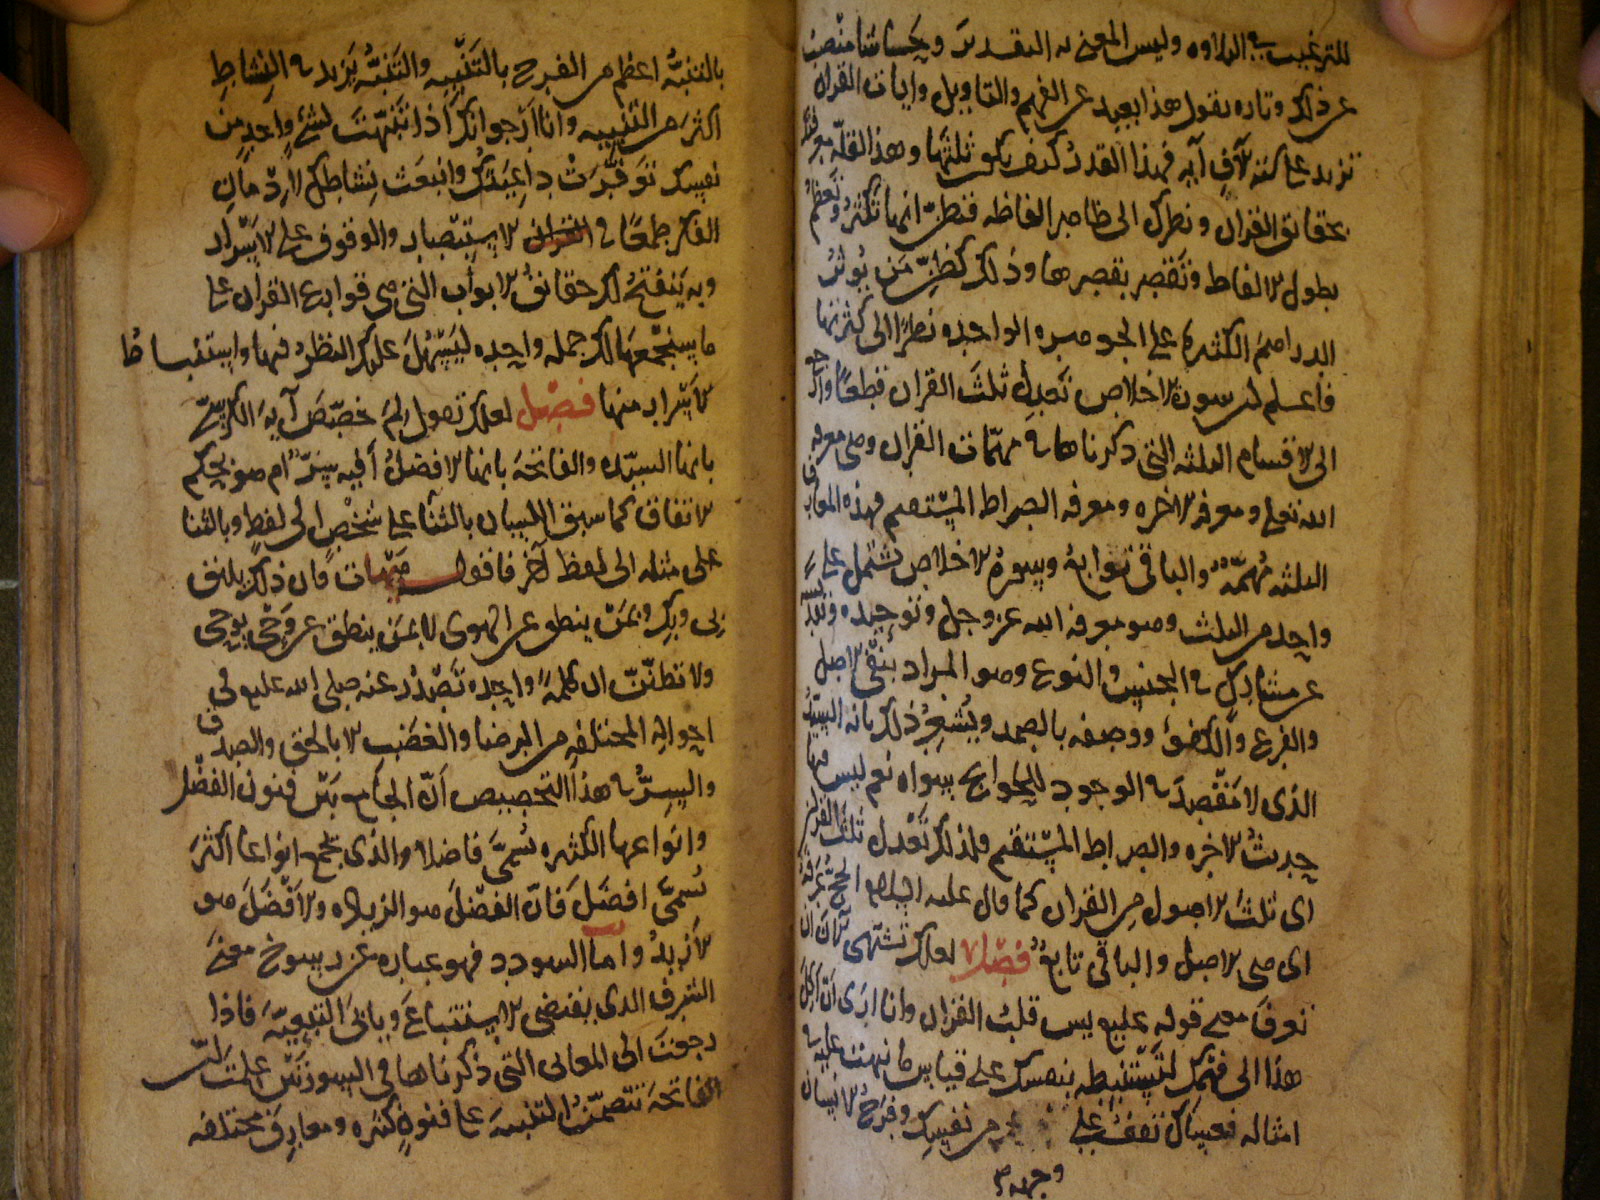 للترغيب في التلاوه وليس المعنى به التقدير وحاشا منصب
عن ذلك وتاره يقول هذا بعيد عن الفهم والتاويل وايات القران
تزيد على ستة آلاف آيه فهذا القدر كيف يكون ثلثها وهذا القلة معرفتك
بحقائق القران ونظرك الى ظاهر الفاظه فتظن انها تكثر وتعظم
بطول الالفاظ وتقصر بقصرها وذلك كظن من يوثر
الدراهم الكثيرة على الجوهره الواحده نظرا الى كثرتها
فاعلم ان سورة الاخلاص تعدل ثلث القران قطعا وارجع
الى الاقسام الثلثه التي ذكرناها في مهمات القران وهي معرفه
الله تعلى ومعرفه الاخره ومعرفه الصراط المستقيم فهذه المعارف
الثلثه مهمة والباقي توابع وسورة الاخلاص تشتمل على
واحد من الثلث وهو معرفه الله عز وجل وتوحيده وتقديسه
عن مشارك في الجنس والنوع وهو المراد بنفي الاصل
والفرع والكفو ووصفه بالصمد ويشعر ذلك بانه السيد
الذي لا مقصد في الوجود للحوائج سواه نعم ليس فيها
حديث الاخره والصراط المستقيم فلذلك تعدل ثلث القران
اى ثلث الاصول من القران كما قال عليه السلام الحج عرفة
اى هى الاصل والباقي تابع فصل لعلك تشتهى الآن ان
تعرف معنى قوله عليه يس قلب القران وانا ارى ان اكل
هذا الى فهمك لتستنبطه بنفسك على قياس ما نبهت عليه في
امثاله فعساك تقف على وجهه من نفسك وفرح الانسان
وجهه
بالتنبه اعظم من الفرح بالتنبيه والتنبه يزيد في النشاط
اكثر من التنبيه وانا ارجو انك اذا تنبهت لشئ واحد من
نفسك توفرت داعيتك وانبعث نشاطك لادمان
الفكر طمعا في القران الاستبصار والوقوف على الاسرار
وبه ينفتح لك حقائق الابواب التي هي قوارع القران على
ما سنجمعها لك جمله واحده ليسهل عليك النظر فيها واستنباط
الاسرار منها فصل لعلك تقول لم خصص آية الكرسي
بانها السيده والفاتحة بانها الافضل أفيه سر ام هو بحكم
الاتفاق كما سبق اللسان بالثنا على شخص الى لفظ وبالثنا
على مثله الى لفظ آخر فاقول هيهات فان ذلك يليق
بى وبك وبمن ينطق عن الهوى لا بمن ينطق عن وحي يوحى
ولا تظنن ان كلمة واحده تصدر عنه صلى الله عليه في
احواله المختلفه من الرضا والغضب الا بالحق والصدق
والسر في هذا التخصيص أن الجامع بين فنون الفضل
وانواعها الكثيره تسمى فاضلا والذى يجمع انواعا اكثر
تسمى افضل فان الفضل هو الزياده والافضل هو
الازيد واما السودد فهو عباره عن رسوخ معنى
الشرف الذى يقتضى الاستتباع ويابى التبعية فاذا
رجعت الى المعانى التي ذكرناها في السورتين علمت ان
الفاتحة تتضمن التنبيه على فنون كثيره ومعارف مختلفه